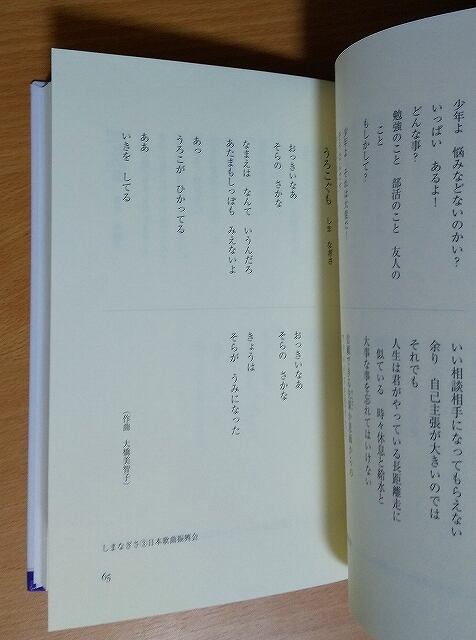 少年よ 悩みなどないのかい？
いっぱい あるよ！
どんな事？
勉強のこと 部活のこと 友人の
こと
もしかして？
いい相談相手になってもらえない
余り 自己主張が大きいのでは
それでも
人生は君がやっている長距離走に
似ている 時々休息と給水と
大事な事を忘れてはいけない
うろこぐも しま なぎさ
おっきいなあ
そらの さかな
なまえは なんて いうんだろ
あたまもしっぽも みえないよ
あっ
うろこが ひかってる
ああ
いきを してる
おっきいなあ
そらの さかな
きょうは
そらが うみになった
（作曲 大橋美智子）
しまなぎさ③日本歌曲振興会
65